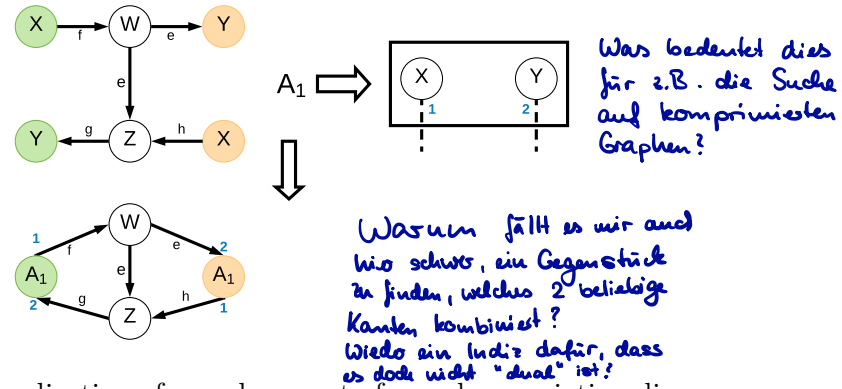 X f W e Y
e
Y g Z h X
A1
X Y
1 2
Was bedeutet dies
für z.B. die Suche
auf komprimierten
Graphen?
W
1 f e 2
A1 e A1
2 g h 1
Z
Warum fällt es mir auch
hier schwer, ein Gegenstück
zu finden, welches 2 beliebige
Kanten kombiniert?
Wieder ein Indiz dafür, dass
es doch nicht "dual" ist?